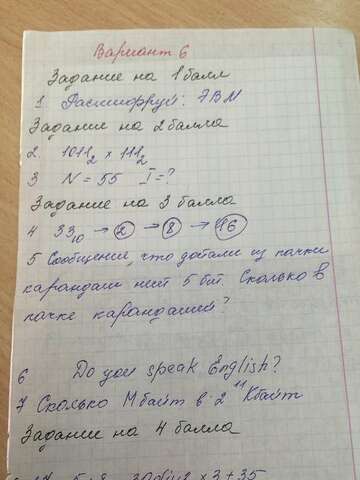 Вариант 6
Задание на 1 балл
1 Расшифруй: ЭВМ
Задание на 2 балла
2. 1011₂ × 111₂
3 N = 55 I = ?
Задание на 3 балла
4 33₁₀ → 2 → 8 → 16
5 Сообщение, что достали из пачки
карандаш несёт 5 бит. Сколько в
пачке карандашей?
6 Do you speak English?
7 Сколько Мбайт в 2¹¹ Кбайт
Задание на 4 балла